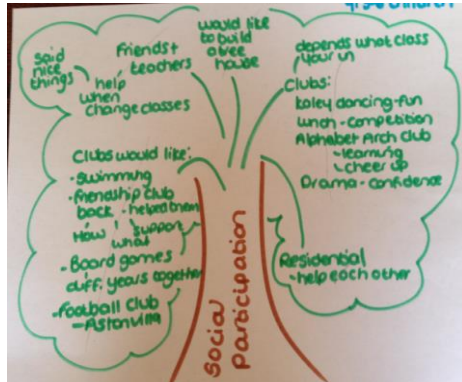 said
nice
things
help
when
change classes
Friends +
teachers
would like
to build
a tree
house
depends what class
your in
Clubs:
Koley dancing - fun
Lunch - competition
Alphabet Arch Club
- learning
- cheer up
Drama - confidence
Clubs would like:
- swimming
- friendship club
back - helped them
How
support
what
- Board games
diff. years together
- Football Club
- Aston villa
Residential
- help each other
social
participation